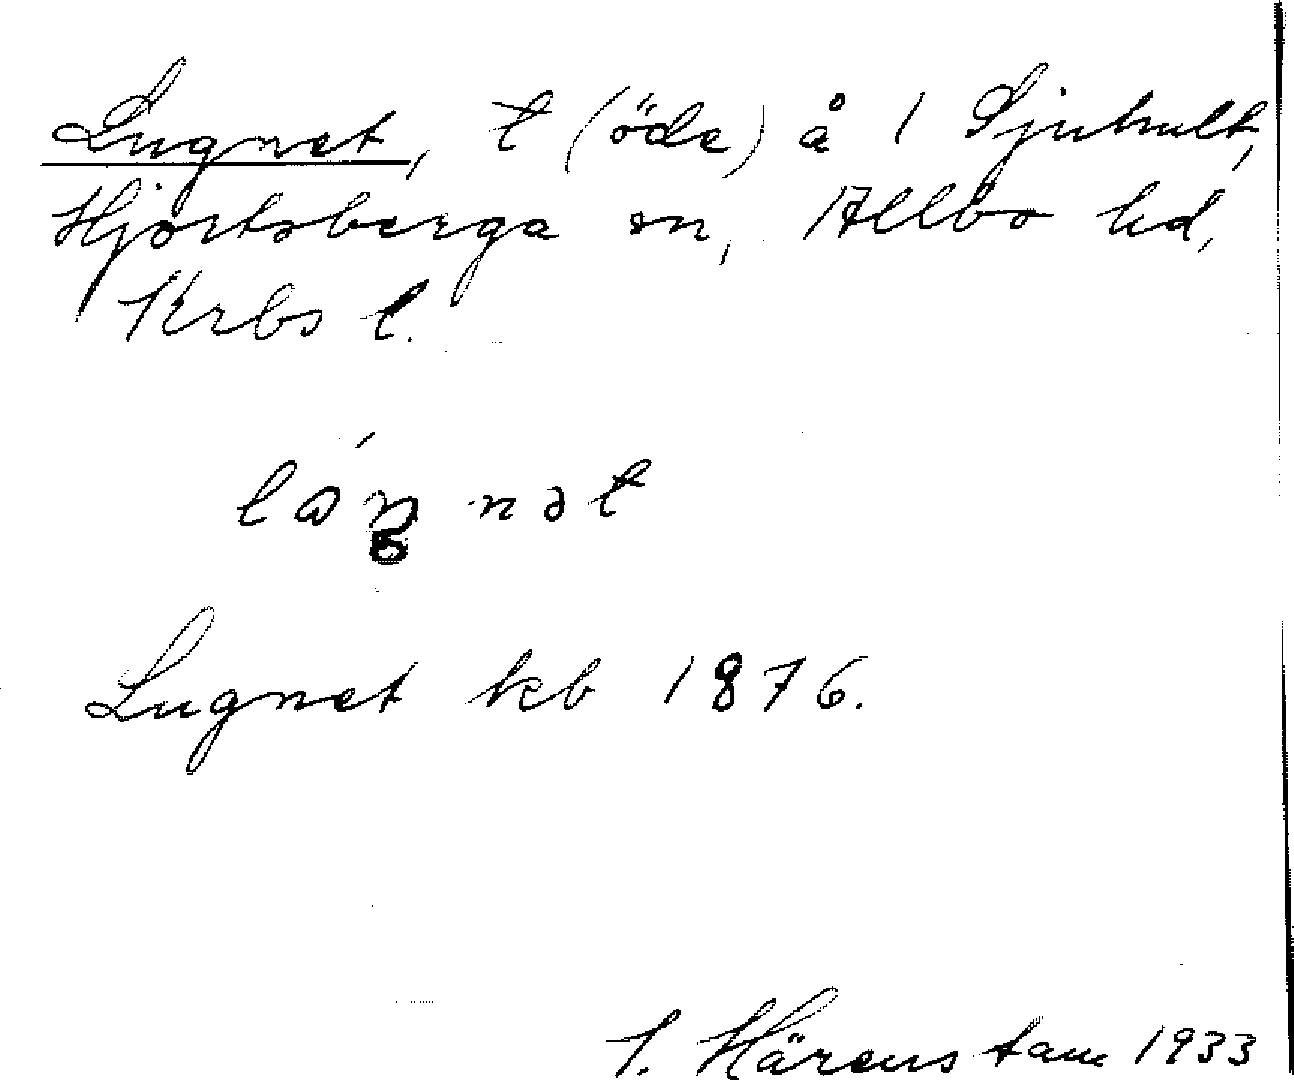 Lugnet, t (öde) å 1 Sjuhult,
Hjortsberga sn, Allbo hd,
Krbs l.
Lugnet kb 1876.
Härenstam 1933